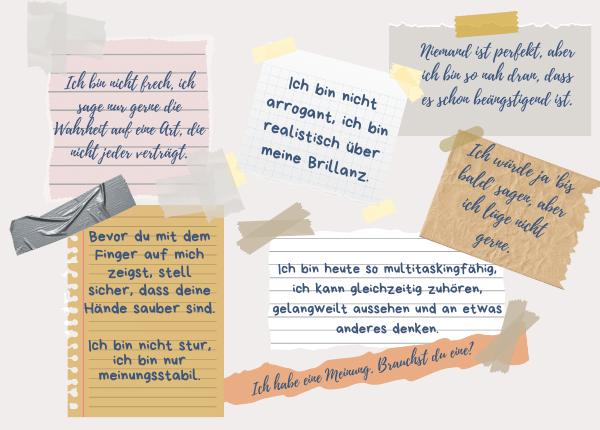 Ich bin nicht frech, ich
sage nur gerne die
Wahrheit auf eine Art, die
nicht jeder verträgt.
Ich bin nicht
arrogant, ich bin
realistisch über
meine Brillanz.
Niemand ist perfekt, aber
ich bin so nah dran, dass
es schon beängstigend ist.
Ich würde ja 'bis
bald' sagen, aber
ich lüge nicht
gerne.
Bevor du mit dem
Finger auf mich
zeigst, stell
sicher, dass deine
Hände sauber sind.
Ich bin nicht stur,
ich bin nur
meinungsstabil.
Ich bin heute so multitaskingfähig,
ich kann gleichzeitig zuhören,
gelangweilt aussehen und an etwas
anderes denken.
Ich habe eine Meinung. Brauchst du eine?